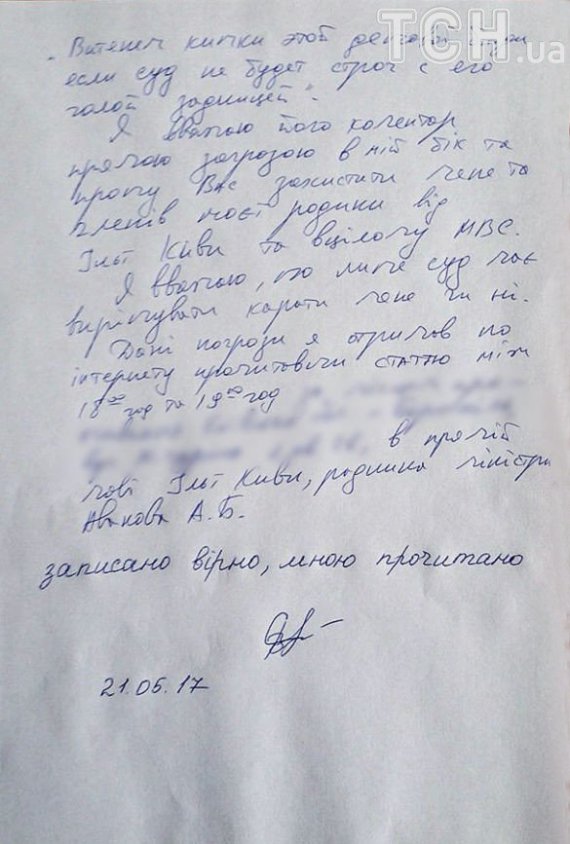 ТСН.ua
"Вытянем кишки этой
если суд не будет строг с его
голой задницей".
Я вважаю його коментар
прямою загрозою в мій бік та
прошу Вас захистити мене та
членів моєї родини від
Іллі Киви та вцілому МВС.
Я вважаю, що лише суд має
вирішувати карати мене чи ні.
Дані погрози я отримав по
інтернету прочитавши статтю між
18⁰⁰ год та 19⁰⁰ год
в прямій
мові Іллі Киви, радника міністра
Авакова А.Б.
записано вірно, мною прочитано
21.06.17